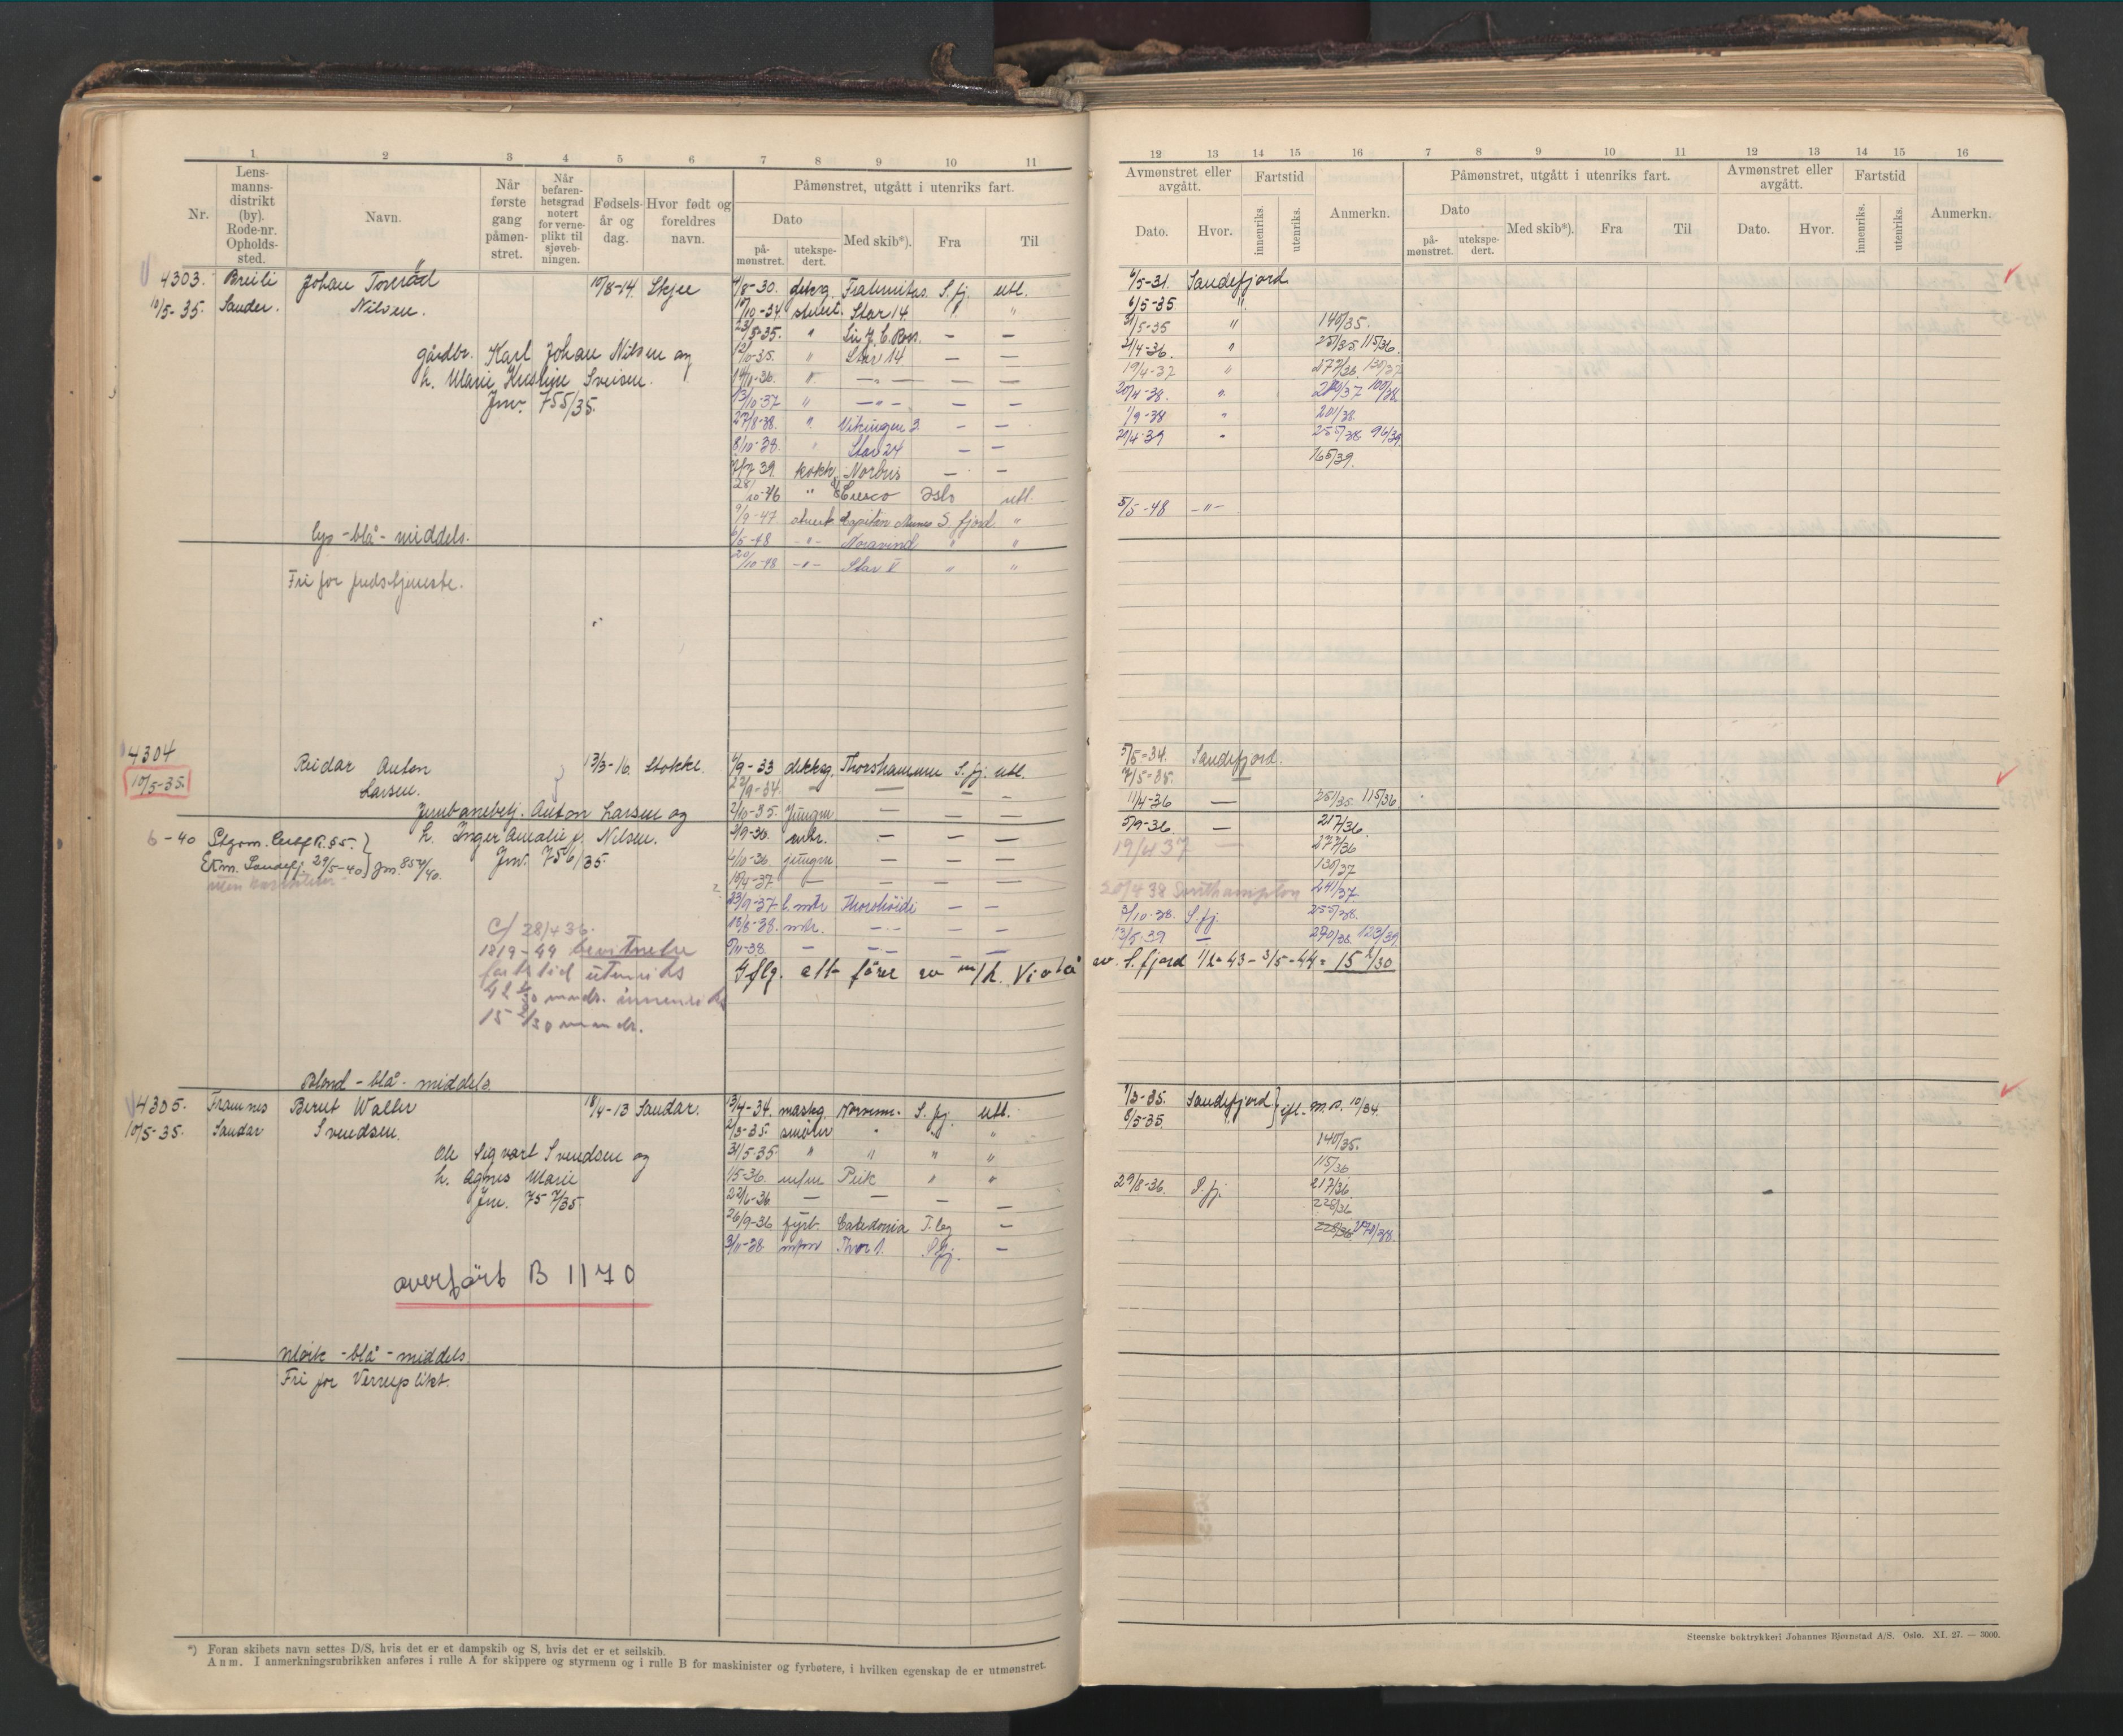 1 2 3 4 5 6 7 8 9 10 11
Nr.
Lens-
manns-
distrikt
(by).
Rode-nr.
Opholds-
sted.
Navn.
Når
første
gang
påmøn-
stret.
Når
befaren-
hetsgrad
notert
for verne-
plikt til
sjøveb-
ningen.
Fødsels-
år og
dag.
Hvor født og
foreldres
navn.
Påmønstret, utgått i utenriks fart.
Dato
på-
mønstret.
utekspe-
dert.
Med skib*).
Fra
Til
4303. Breili Johan Torerød 10/8-14. Skjee 4/8-30. dekkg. Fraternitas. S. fj. utl.
10/5-35. Sandar. Nilsen. 10/10-34 stuert. Star 14 " "
23/5-35. " Sir J. C. Ross. — —
gårdbr. Karl Johan Nilsen og 12/10-35. " Star 14 — —
h. Marie Kristine Sveisen. 14/10-36. " —"— — —
Jnr. 755/35. 13/10-37 " —"— — —
27/8-38. " Vikingen 3 — —
8/10-38. " Star 24 — —
7/7 39 kokk Norbris — —
28/10-46 " Cresco Oslo utl.
9/9-47. stuert Kaptein Munes S. fjord "
lys - blå - middels. 6/5-48 —"— Noravind " "
20/10-48 —"— Star V " "
Fri for fredstjeneste.
4304 Reidar Anton 13/3-16. Stokke. 4/9-33 dekksg. Thorshammer S. fj. utl.
10/5-35. Larsen. 22/9-34. — — — —
Jernbanebetj. Anton Larsen og 2/10-35. Jungm — —
6-40 Stgom. Certf. R. 55. h. Inger Amalie f. Nilsen. 3/9-36. mtr. — — —
Ekm. Sandefj. 29/5-40 Jnr. 854/40. Jnr. 756/35. 4/10-36. jungm — — —
15/4-37 — — — —
23/9-37 l. mtr Thorshöidi — —
c/ 28/4 36. 18/8-38. mtr. — — —
1819-44 bevitnelse 9/11-38. — — — —
fartstid utenriks Iflg. att. fører av m/k. Viola
42 mndr. innenriks
15 2/30 mndr.
Blond - blå - middels
4305. Framnes Bernt Walter 18/4-13 Sandar. 13/4-34. maskg. S. fj. utl.
10/5-35. Sandar Svendsen. 2/3-35. smører " " "
Ole Sigvart Svendsen og 31/5-35 " " " "
h. Agnes Marie 1/5-36. m/m Peik " "
Jnr. 757/35 22/6-36 — — — —
26/9-36 fyrb. Caledonia T.bg —
3/11-38 Thor I. S. fj. —
overført B 1170
Mørk - blå - middels
Fri for Verneplikt.
*) Foran skibets navn settes D/S, hvis det er et dampskib og S, hvis det er et seilskib.
Anm. I anmerkningsrubrikken anføres i rulle A for skippere og styrmenn og i rulle B for maskinister og fyrbøtere, i hvilken egenskap de er utmønstret.
12 13 14 15 16 7 8 9 10 11 12 13 14 15 16
Avmønstret eller
avgått.
Dato.
Hvor.
Fartstid
innenriks.
utenriks.
Anmerkn.
Påmønstret, utgått i utenriks fart.
Dato
på-
mønstret.
utekspe-
dert.
Med skib*).
Fra
Til
Avmønstret eller
avgått.
Dato.
Hvor.
Fartstid
innenriks.
utenriks.
Anmerkn.
6/5-31. Sandefjord
6/5-35. "
31/5-35 " 140/35.
21/4-36. " 251/35 115/36.
19/4-37 " 277/36 130/37
20/4-38. " 240/37 100/38
1/9-38 " 201/38.
21/4-39 " 255/38 96/39
165/39.
5/5-48 —"—
5/5-34. Sandefjord.
7/5-35. —
11/4-36 — 251/35 115/36
5/9-36 — 217/36
19/4 37 — 277/36
130/37
20/4 38 Southampton 241/37.
3/10-38. S. fj. 255/38.
13/5-39 — 290/38 123/39
av S. fjord 1/2-43 - 3/5-44 = 15 2/30
1/3-35. Sandefjord ifl. m. b. 10/34.
8/5-35.
140/35.
115/36
29/8-36. S. fj. 217/36
228/36
228/36 270/38.
Steenske boktrykkeri Johannes Bjørnstad A/S. Oslo. XI. 27. — 5000.